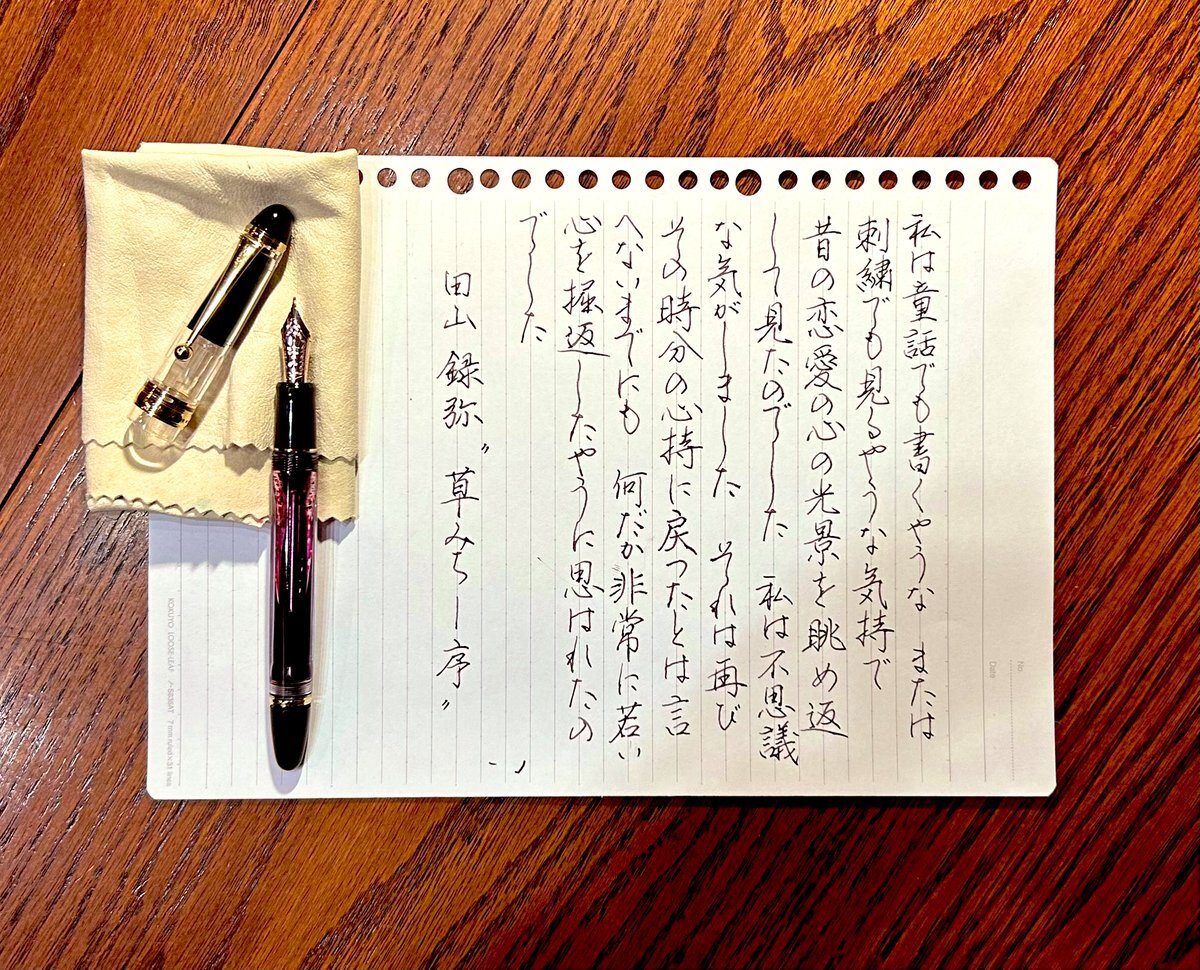 私は童話でも書くやうな　または
刺繍でも見るやうな気持で
昔の恋愛の心の光景を眺め返
して見たのでした　私は不思議
な気がしました　それは再び
その時分の心持に戻つたとは言
へないまでにも　何だか非常に若い
心を掘返したやうに思はれたの
でした
田山録弥〝草みち序〟
No.
Date
KOKUYO LOOSE-LEAF ノ-S836AT 7 mm ruled×31 lines